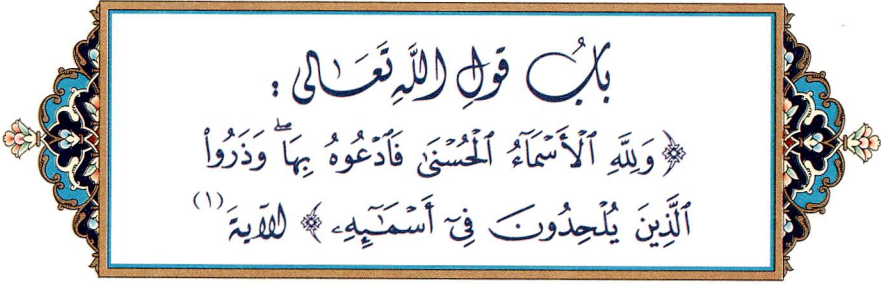 بَابُ قَوْلِ اللَّهِ تَعَالَى :
﴿ وَلِلَّهِ ٱلْأَسْمَآءُ ٱلْحُسْنَىٰ فَٱدْعُوهُ بِهَا ۖ وَذَرُوا۟
ٱلَّذِينَ يُلْحِدُونَ فِىٓ أَسْمَـٰٓئِهِۦ ﴾ الآيَةَ (١)